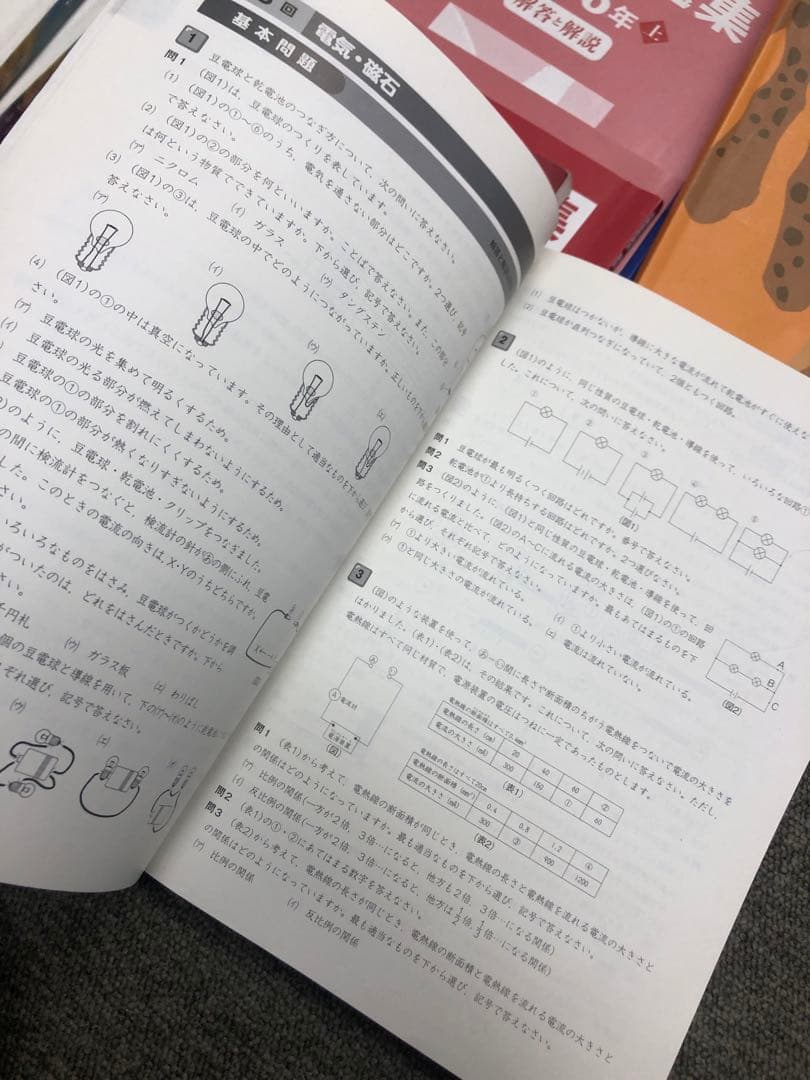 集
6年 上
解答と解説
集
回 電気・磁石
基本問題
1
問1 豆電球と乾電池のつなぎ方について、次の問いに答えなさい。
(図1)は、豆電球のつくりを表しています。
(1) (図1)の①～⑥のうち、電気を通さない部分はどこですか。2つ選び、記号
で答えなさい。
(2) (図1)の②の部分を何といいますか。ことばで答えなさい。また、この部分
は何という物質でできていますか。下から選び、記号で答えなさい。
(ア) ニクロム (イ) ガラス (ウ) タングステン
(3) (図1)の③は、豆電球の中でどのようにつながっていますか。正しいものを
答えなさい。
(ア)
(イ)
(ウ)
(エ)
(4) (図1)の①の中は真空になっています。その理由として適当なものを下から選び
さい。
(ア) 豆電球の光を集めて明るくするため。
(イ) 豆電球の光る部分が燃えてしまわないようにするため。
豆電球の①の部分を割れにくくするため。
豆電球の①の部分が熱くなりすぎないようにするため。
のように、豆電球・乾電池・クリップをつなぎました。
の間に検流計をつなぐと、検流計の針があの側にふれ、豆電
した。このときの電流の向きは、X・Yのうちどちらですか。
さい。
いろいろなものをはさみ、豆電球がつくかどうかを調
がついたのは、どれをはさんだときですか。下から
千円札 (ウ) ガラス板 (エ) わりばし
個の豆電球と導線を用いて、下の(ア)～
それ選び、記号で答えなさい。
(ウ)
(エ)
(1) 豆電球はつかないが、導線に大きな電流が流れて乾電池がすぐに使え
(2) 豆電球が並列つなぎになっていて、2個ともつく回路。
2 (図1)のように、同じ性質の豆電球・乾電池・導線を使って、いろいろな回路
した。これについて、次の問いに答えなさい。
① ② ③ ④ ⑤
(図1)
問1 豆電球が最も明るくつく回路はどれですか。番号で答えなさい。
問2 乾電池が①より長持ちする回路はどれですか。2つ選びなさい。
問3 (図2)のように、(図1)と同じ性質の豆電球・乾電池・導線を使って、回
路をつくりました。(図2)のA～Cに流れる電流の大きさは、(図1)の①の回路
に流れる電流と比べて、どのようになっていますか。最もあてはまるものを下
から選び、それぞれ記号で答えなさい。
(ア) ①より大きい電流が流れている。 (イ) ①より小さい電流が流れている。
(ウ) ①と同じ大きさの電流が流れている。 (エ) 電流は流れていない。
A
B
C
(図2)
3 (図)のような装置を使って、あ～い間に長さや断面積のちがう電熱線をつないで電流の大きさを
はかりました。(表1)・(表2)は、その結果です。これについて、次の問いに答えなさい。ただし、
電熱線はすべて同じ材質で、電源装置の電圧はつねに一定であったものとします。
あ い
A 電流計
電源装置
(図)
電熱線の断面積はすべて0.4mm²
電熱線の長さ(cm) 20 40 60 ②
電流の大きさ(mA) 300 150 ① 60
(表1)
電熱線の長さはすべて20cm
電熱線の断面積(mm²) 0.4 0.8 1.2 ④
電流の大きさ(mA) 300 ③ 900 1200
(表2)
問1 (表1)から考えて、電熱線の断面積が同じとき、電熱線の長さと電熱線を流れる電流の大きさと
の関係はどのようになっていますか。最も適当なものを下から選び、記号で答えなさい。
(ア) 比例の関係(一方が2倍、3倍…になると、他方も2倍、3倍…になる関係)
(イ) 反比例の関係(一方が2倍、3倍…になると、他方は1/2倍、1/3倍…になる関係)
問2 (表1)の①・②にあてはまる数字を答えなさい。
問3 (表2)から考えて、電熱線の長さが同じとき、電熱線の断面積と電熱線を流れる電流の大きさと
の関係はどのようになっていますか。最も適当なものを下から選び、記号で答えなさい。
(ア) 比例の関係 (イ) 反比例の関係